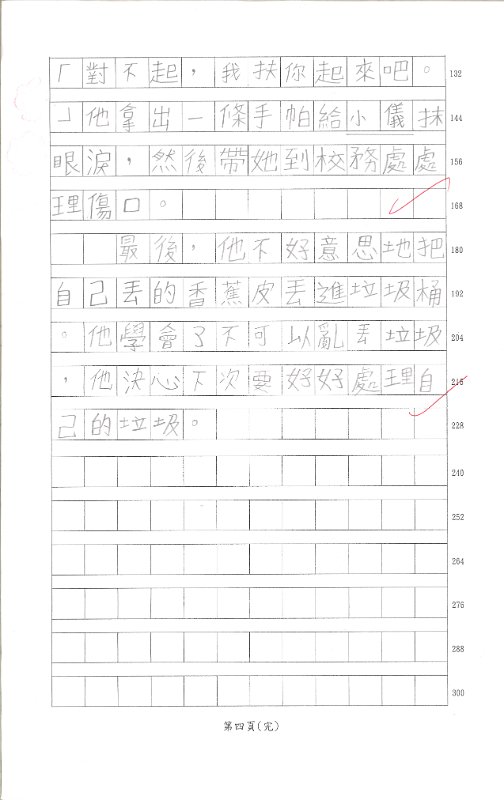 「對不起，我扶你起來吧。 132
」他拿出一條手帕給小儀抹 144
眼淚，然後帶她到校務處處 156
理傷口。 168
最後，他不好意思地把 180
自己丟的香蕉皮丟進垃圾桶 192
。他學會了不可以亂丟垃圾 204
，他決心下次要好好處理自 216
己的垃圾。 228
240
252
264
276
288
300
第四頁(完)